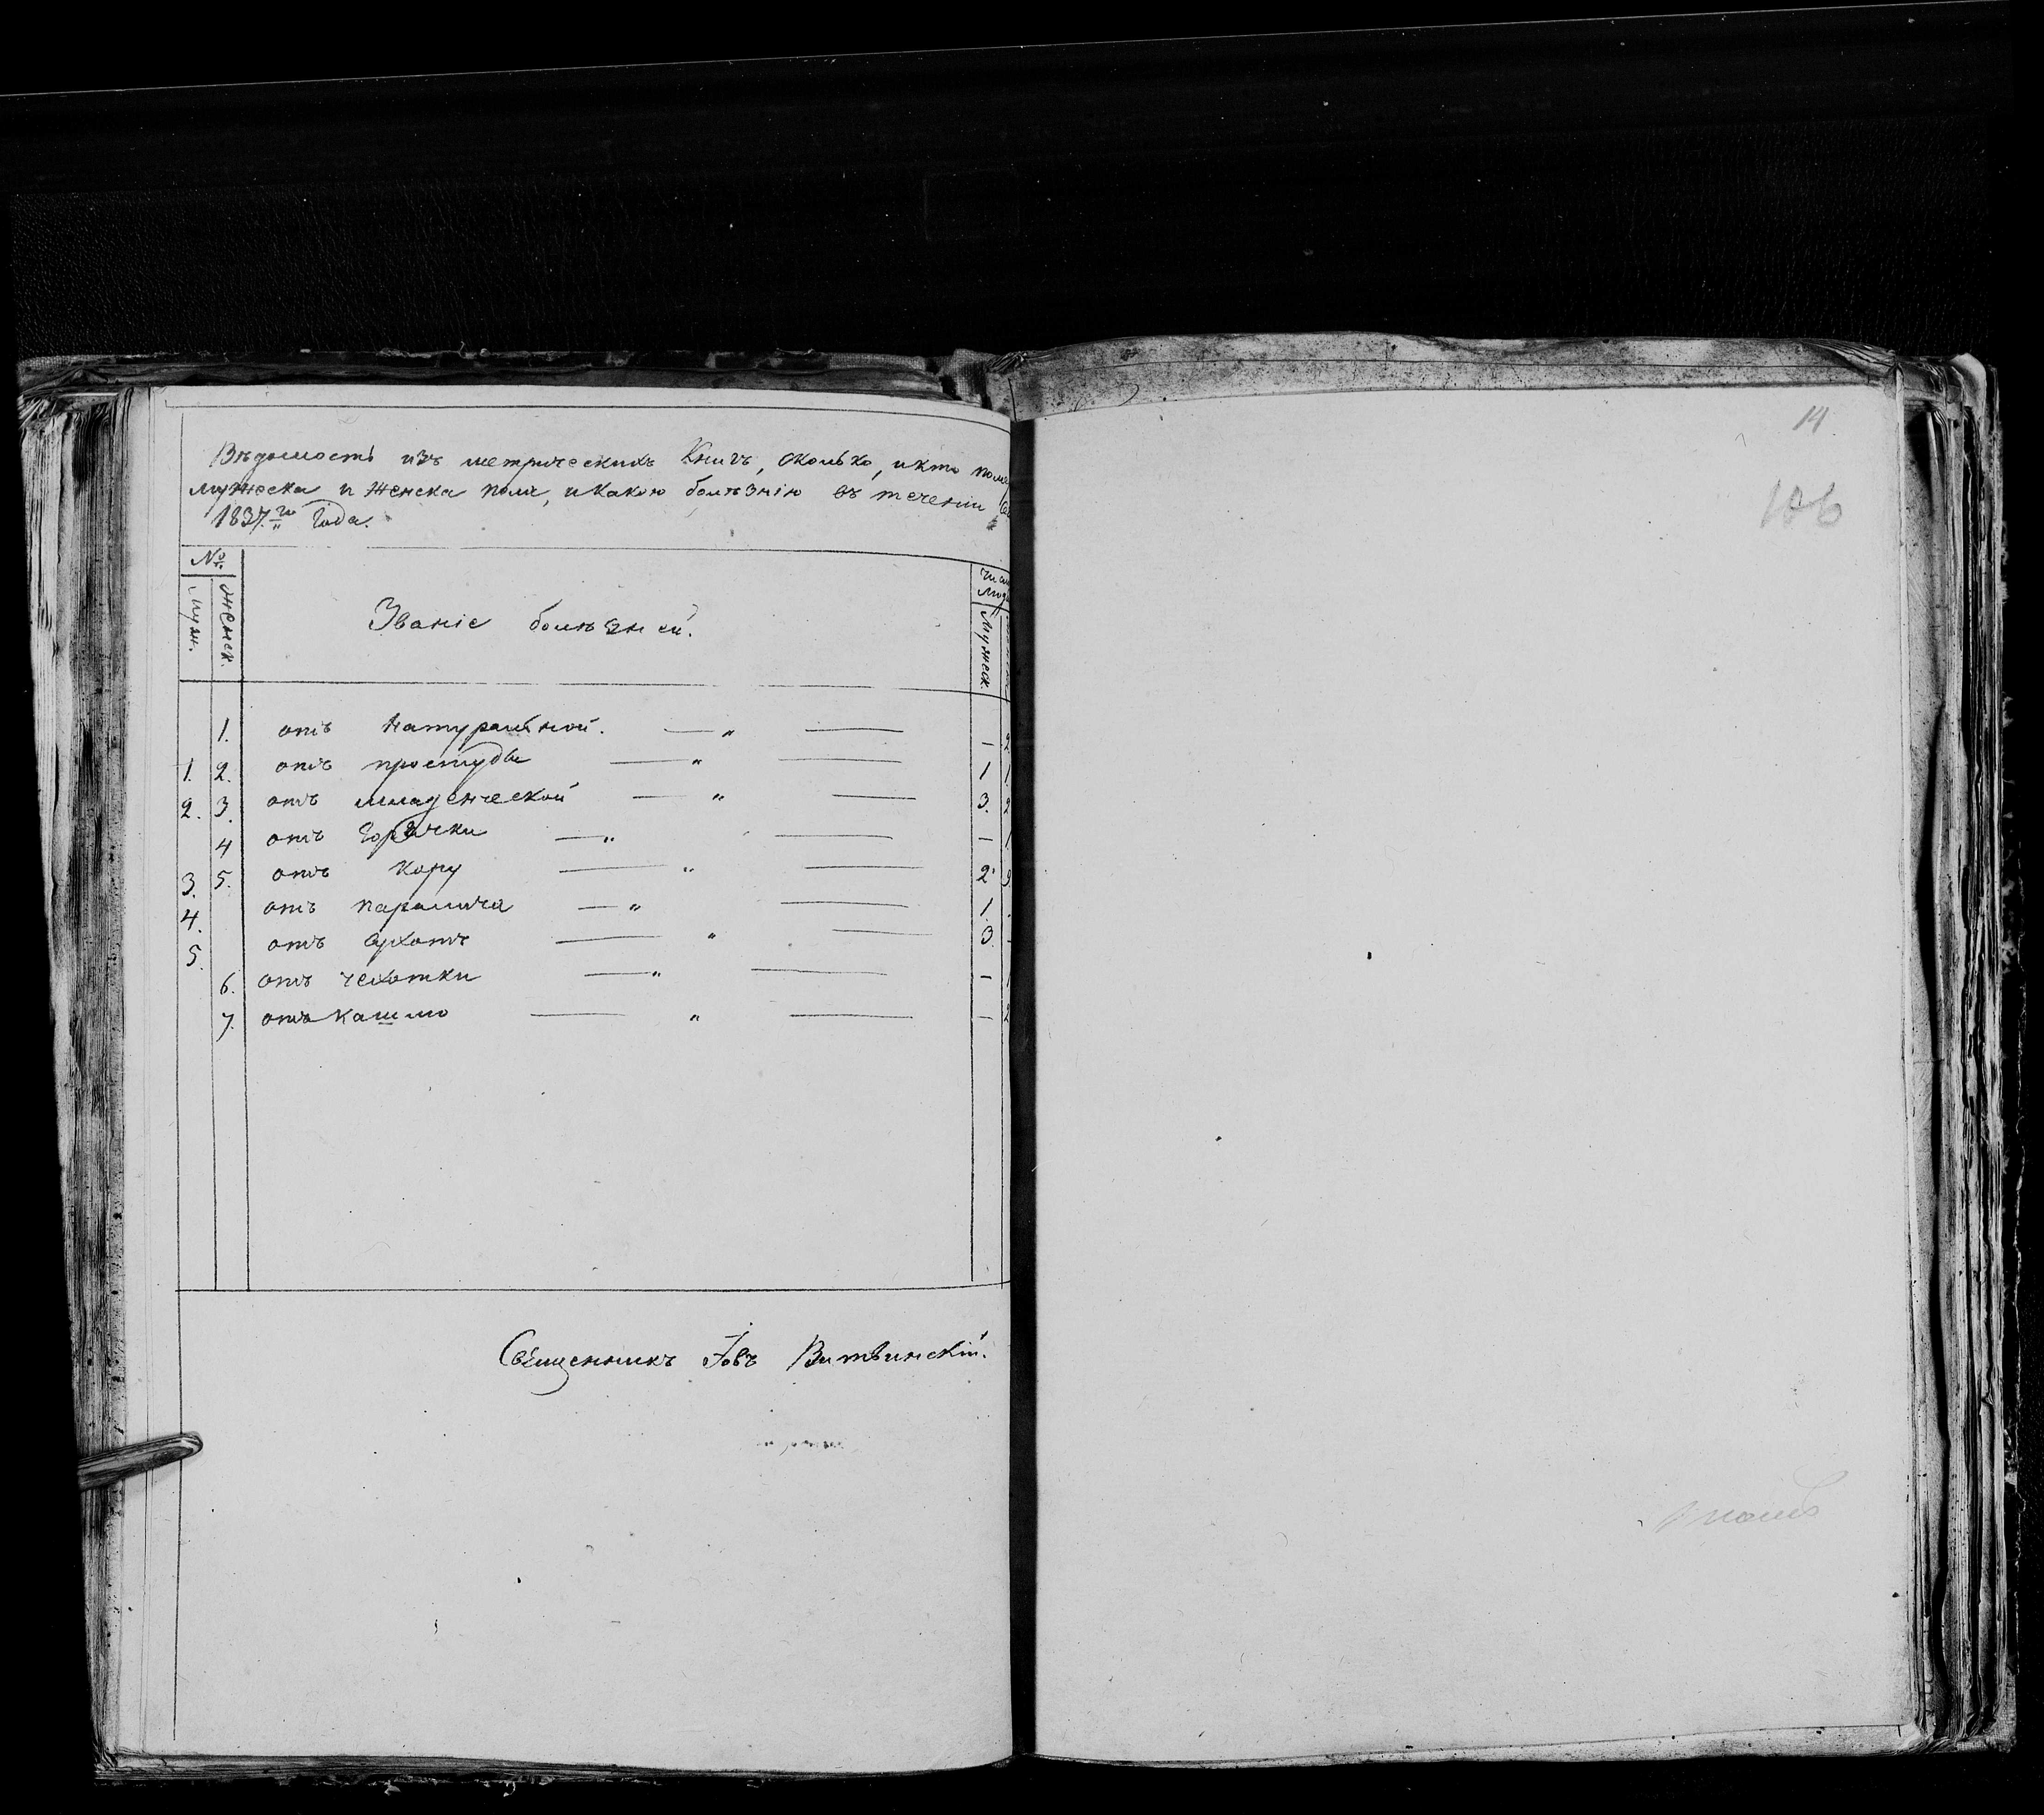 Вѣдомость изъ метрическихъ Книгъ, сколько, и кто поме
мужеска и женска пола, и какою болѣзнію въ теченіи
1837.го Года.
№.
Муж. Женск. Званіе болѣзней. Мужеск.
1. отъ натуральной. — „ — — 2
1. 2. отъ простуды — „ — 1 1
2. 3. отъ младенческой — „ — 3. 2
4 отъ Горячки — „ — — 1
3. 5. отъ кору — „ — 2 3
4. отъ паралича — „ — 1.
5. отъ сухотъ — „ — 3. -
6. отъ чехотки — „ — — 1
7. отъ кашлю — „ — — 2
Священникъ Іовъ Витвинскій.
14
106